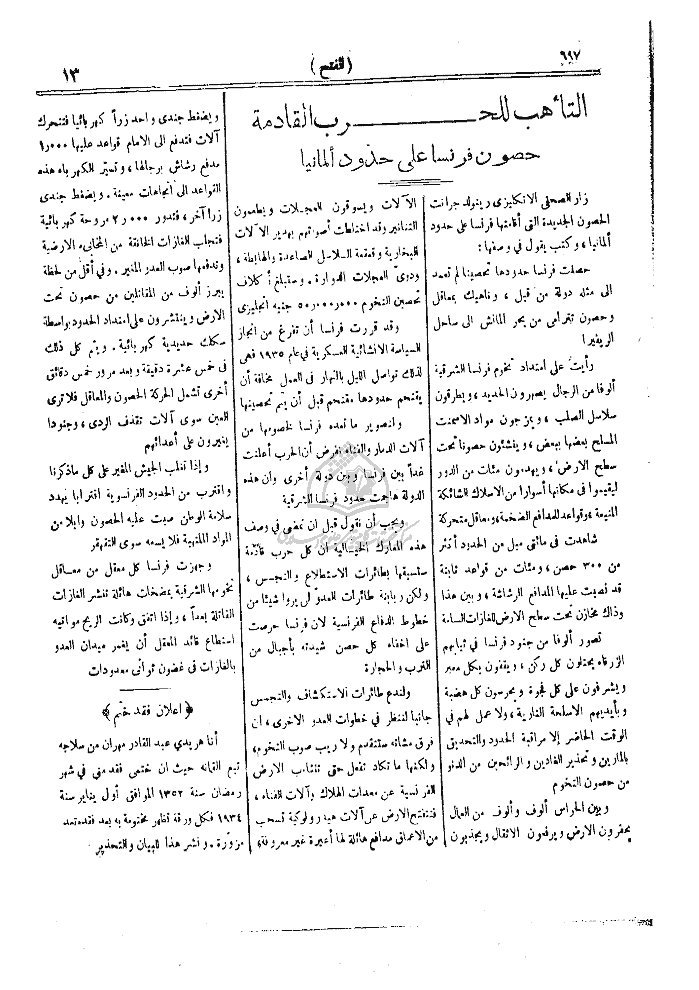 ٦٩٧
( الفتح )
١٣
التأهب للحرب القادمة
حصون فرنسا على حدود ألمانيا
زار الصحفى الانكليزى رينولد جرانت
الحصون الجديدة التى أقامتها فرنسا على حدود
ألمانيا ، وكتب يقول فى وصفها :
حصلت فرنسا حدودها تحصينا لم تعمد
الى مثله دولة من قبل ، وناهيك بمعاقل
وحصون تترامى من بحر المانش الى ساحل
الريفيرا
رأيت على امتداد تخوم فرنسا الشرقية
ألوفا من الرجال يصهرون الحديد ، ويطرقون
سلاسل الصلب ، ويمزجون مواد الاسمنت
المسلح بعضها ببعض ، وينشئون حصونا تحت
سطح الارض ، ويهدمون مئات من الدور
ليقيموا فى مكانها أسوارا من الاسلاك الشائكة
المنيعة ، وقواعد للمدافع الضخمة ، ومعاقل متحركة
شاهدت فى مائتى ميل من الحدود أكثر
من ٣٠٠ حصن ، ومئات من قواعد ثابتة
قد نصبت عليها المدافع الرشاشة ، وبين هذا
وذاك مخازن تحت سطح الارض للغازات السامة
تصور ألوفا من جنود فرنسا فى ثيابهم
الزرقاء يحتلون كل ركن ، ويقفون بكل معبر
ويشرفون على كل فجوة ويحرسون كل هضبة
وبأيديهم الاسلحة النارية ، ولا عمل لهم فى
الوقت الحاضر إلا مراقبة الحدود والتحديق
بالمارين وتحذير الغادين و الرائحين من الدنو
من حصون التخوم
و بين الحراس ألوف وألوف من العمال
يحفرون الارض ويرفعون الاثقال ويجذبون
الآلات ويسوقون العجلات ويطعمون
التنانير وقد اختلطت أصواتهم بهدير الآلات
البخارية وقعقعة السلاسل الصاعدة والهابطة ،
ودوىّ العجلات الدوارة . وستبلغ أكلاف
تحصين التخوم ٥٠٫٠٠٠٫٠٠٠ جنيه انجليزى
وقد قررت فرنسا أن تفرغ من انجاز
السياسة الانشائية العسكرية فى عام ١٩٣٥ فهى
لذلك تواصل الليل بالنهار فى العمل مخافة أن
يقتحم حدودها مقتحم قبل أن يتم تحصينها
ولتصوير ما تعده فرنسا لخصومها من
آلات الدمار والفناء نفرض أن الحرب أعلنت
غداً بين فرنسا وبين دولة أخرى وان هذه
الدولة هاجمت حدود فرنسا الشرقية
ويجب أن نقول قبل ان نمضى فى وصف
هذه المعارك الخيالية ان كل حرب قائمة
ستسبقها بطائرات الاستطلاع والتجسس ،
ولكن ربابنة طائرات العدوّ لن يروا شيئا من
خطوط الدفاع الفرنسية لان فرنسا حرصت
على اخفاء كل حصن شيدته بأجبال من
الترب والحجارة
ولندع طائرات الاستكشاف والتجسس
جانبا لننظر فى خطوات العدو الاخرى ، ان
فرق مشاته ستتقدم ولا ريب صوب التخوم ،
ولكنها ما تكاد تفعل حتى تتثاءب الارض
الفرنسية عن معدات الهلاك وآلات الفناء ،
فتنفتح الارض عن آلات هيدرولوكية تسحب
من الاعماق مدافع هائلة لها أعيرة غير معروفة ،
ويضغط جندى واحد زراً كهربائيا فتتحرك
آلات فتدفع الى الامام قواعد عليها ١٫٠٠٠
مدفع رشاش برجالها ، وتسيّر الكهرباء هذه
القواعد الى اتجاهات معينة . ويضغط جندى
زرا آخر ، فتدور ٢٫٠٠٠ مروحة كهربائية
فتجلب الغازات الخانقة من المخابىء الارضية
وتدفعها صوب العدو المغير . وفى أقل من لحظة
يبرز ألوف من المقاتلين من حصون تحت
الارض وينتشرون على امتداد الحدود بواسطة
سكك حديدية كهربائية . ويتم كل ذلك
فى خمس عشرة دقيقة وبعد مرور خمس دقائق
أخرى تشمل الحركة الحصون والمعاقل فلا ترى
العين سوى آلات تقذف الردى ، وجنودا
يغيرون على أعدائهم
واذا تغلب الجيش المغير على كل ما ذكرنا
واقترب من الحدود الفرنسوية اقترابا يهدد
سلامة الوطن صبت عليه الحصون وابلا من
المواد الملتهبة فلا يسعه سوى التقهقر
وجهزت فرنسا كل معقل من معاقل
تخومها الشرقية بمضخات هائلة تنشر الغازات
القاتلة بعداً ، واذا اتفق وكانت الريح مواتية
استطاع قائد المعقل أن يغمر ميدان العدو
بالغازات فى غضون ثوانى معدودات
﴿ اعلان فقد ختم ﴾
أنا هريدى عبد القادر مهران من سلاجه
تبع القمانه حيث ان ختمى فقد منى فى شهر
رمضان سنة ١٣٥٢ الموافق أول يناير سنة
١٩٣٤ فكل ورقة تظهر مختومة به بعد فقده تعد
مزوّرة . ونشر هذا للبيان والتحذير